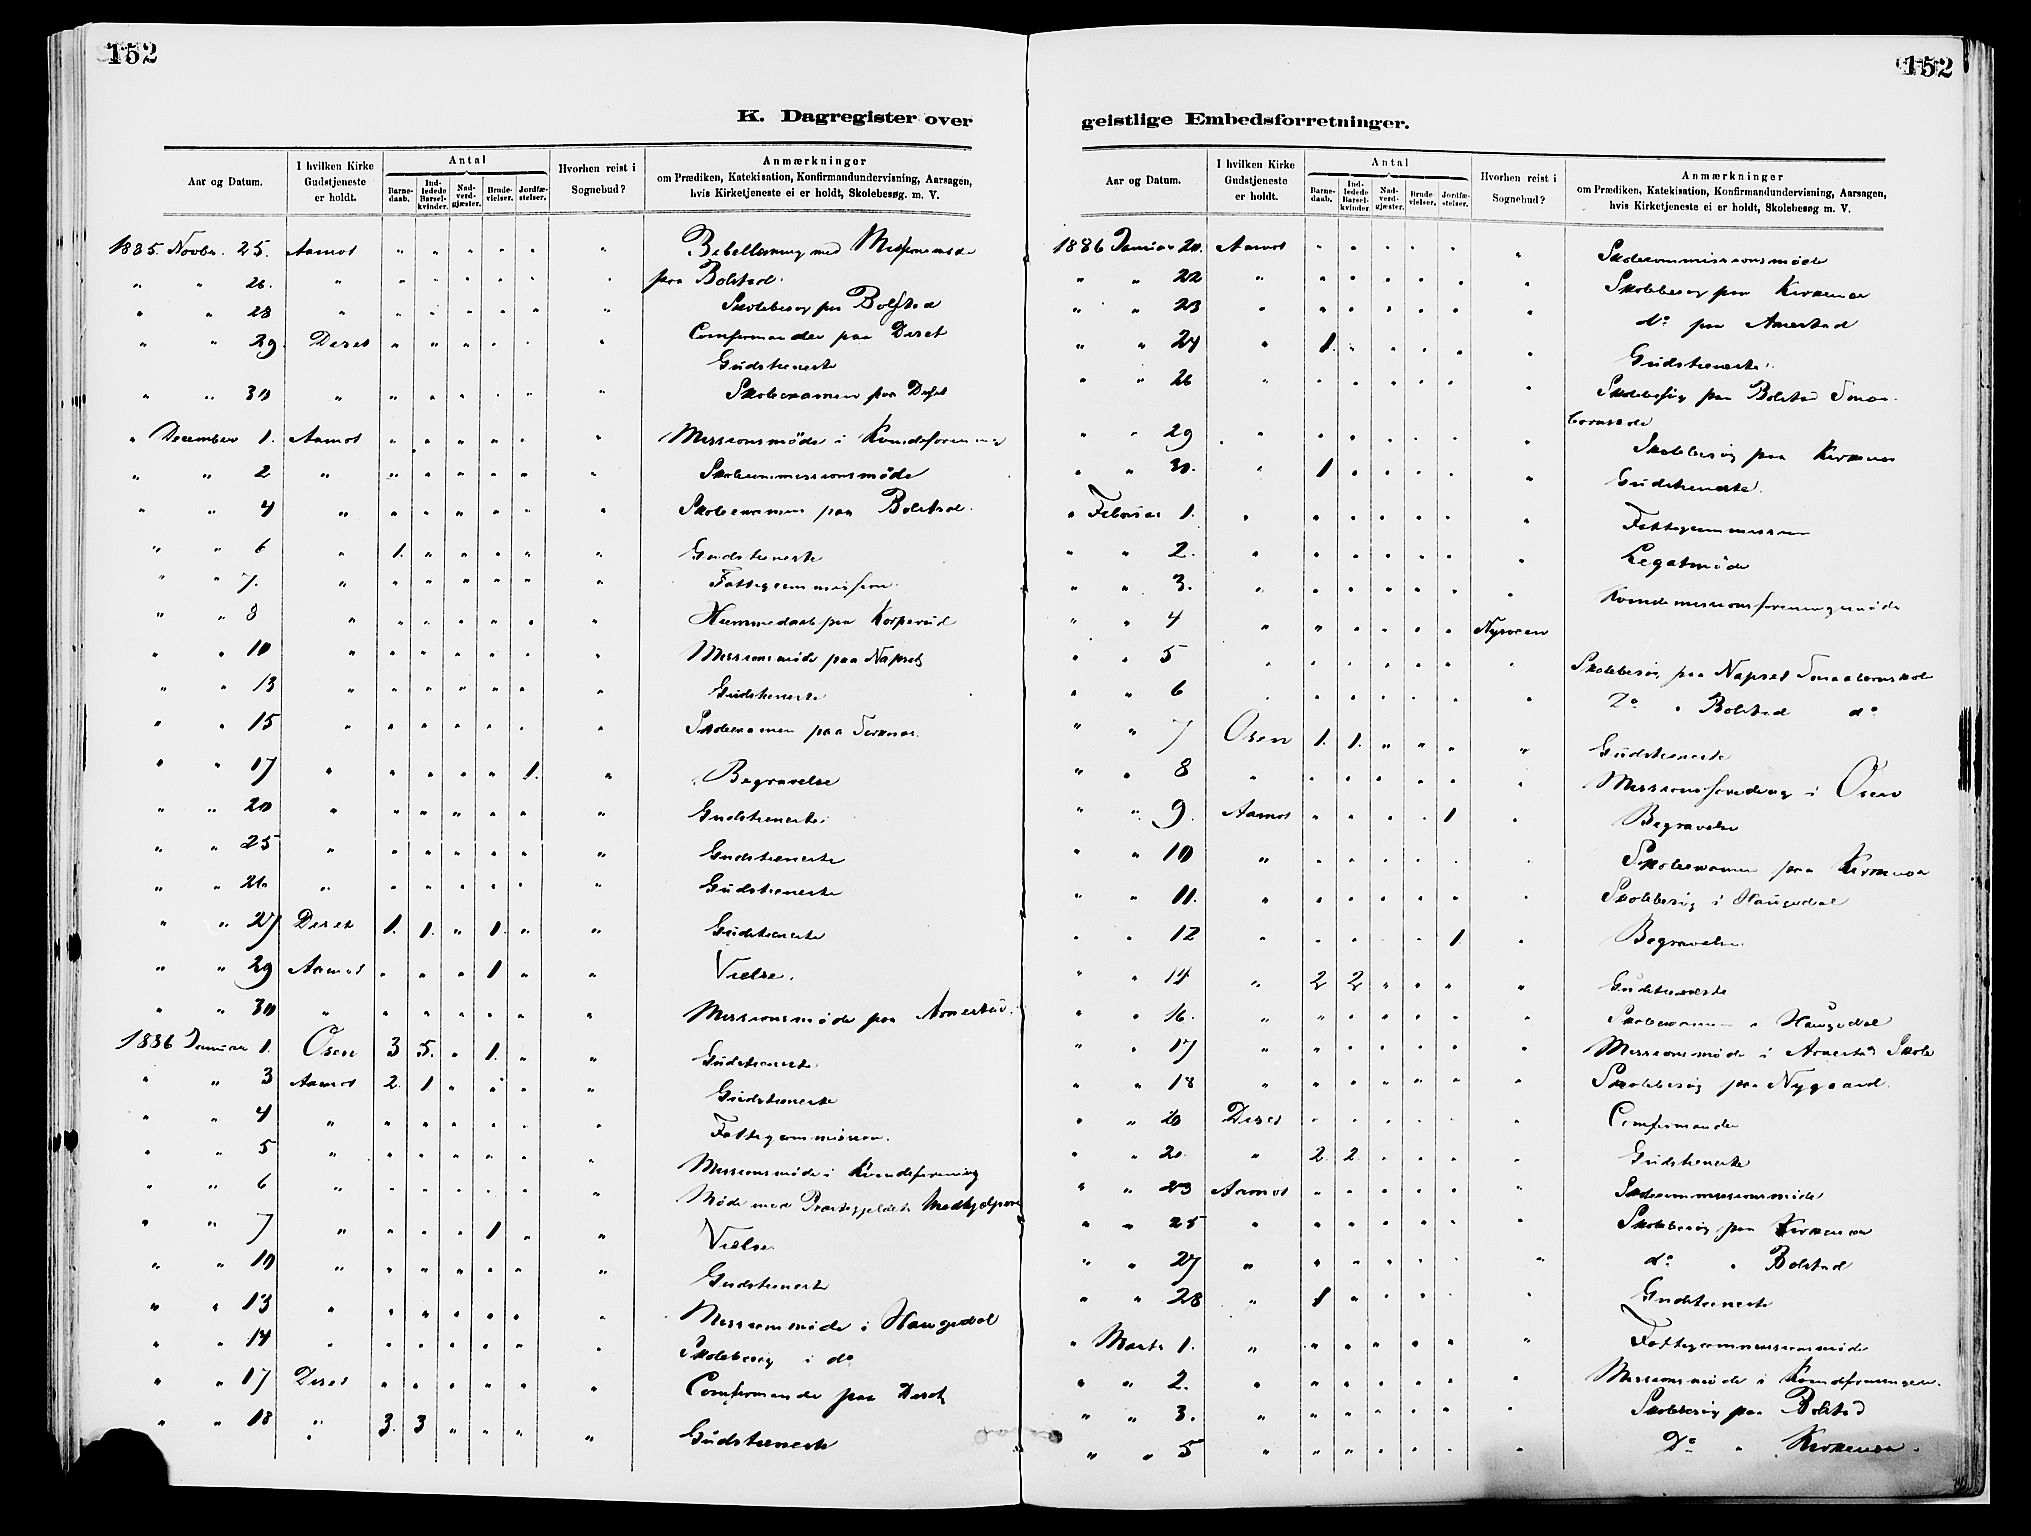 152
K. Dagregister over
Aar og Datum.
I hvilken Kirke Gudstjeneste er holdt.
Antal
Barne-daab.
Ind-ledede Barsel-kvinder.
Nad-verd-gjæster.
Brude-vielser.
Jordfæ-stelser.
Hvorhen reist i Sognebud?
Anmærkninger
om Prædiken, Katekisation, Konfirmandundervisning, Aarsagen,
hvis Kirketjeneste ei er holdt, Skolebesøg. m. V.
1885. Novbr. 25. Aamot " " " " " " Bibellæsning med Missionsmøde
" " 26. " " " " " " " paa Bolstad.
" " 28 " " " " " " " Skolebesøg paa Bolstad
" " 29 Deset " " " " " " Comfirmander paa Deset
Gudstieneste
" " 30 " " " " " " " Skoleexamen paa Deset
" December 1. Aamot " " " " " " Missionsmøde i Kvindeforening
" " 2 " " " " " " " Skolecommissionsmøde
" " 4 " " " " " " " Skoleexamen paa Bolstad.
" " 6 " 1. " " " " " Gudstieneste
" " 7. " " " " " " " Fattigcommission.
" " 8 " " " " " " " Hiemmedaab paa
" " 10 " " " " " " " Missionsmøde paa Napset
" " 13 " " " " " " " Gudstieneste
" " 15 " " " " " " " Skoleexamen paa
" " 17 " " " " " 1. " Begravelse
" " 20 " " " " " " " Gudstieneste
" " 25 " " " " " " " Gudstieneste
" " 26 " " " " " " " Gudstieneste
" " 27 Deset 1. 1. " 1. " " Gudstieneste
" " 29 Aamot " " " 1 " " Vielse.
" " 30 " " " " " " " Missionsmøde paa Arnestad.
1886 Januar 1. Osen 3 5. " 1. " " Gudstieneste
" " 3 Aamot 2. 1 " " " " Gudstieneste
" " 4 " " " " " " " Fattigcommission.
" " 5 " " " " " " " Missionsmøde i Kvindeforening
" " 6 " " " " " " " Møde med Præstegjeldets Medhjelpere
" " 7 " " " " 1 " " Vielse
" " 10 " " " " " " " Gudstieneste
" " 13 " " " " " " " Missionsmøde i Haugedal
" " 14 " " " " " " " Skolebesøg i do
" " 17 Deset " " " " " " Comfirmander paa Deset
" " 18 " 3. 3 " " " " Gudstieneste
152
geistlige Embedsforretninger.
Aar og Datum.
I hvilken Kirke Gudstjeneste er holdt.
Antal
Barne-daab.
Ind-ledede Barsel-kvinder.
Nad-verd-gjæster.
Brude vielser.
Jordfæ-stelser.
Hvorhen reist i Sognebud?
Anmærkninger
om Prædiken, Katekisation, Konfirmandundervisning, Aarsagen,
hvis Kirketjeneste ei er holdt, Skolebesøg m. V.
1886 Januar 20. Aamot " " " " " " Skolecommissionsmøde
" " 22 " " " " " " " Skolebesøg paa Kirkenær
" " 23 " " " " " " " do paa Arnestad
" " 24 " 1. " " " " " Gudstieneste.
" " 26 " " " " " " " Skolebesøg paa Bolstad Smaa-
børnsskole
" " 29 " " " " " " " Skolebesøg paa Kirkenær
" " 30. " 1 " " " " " Gudstieneste.
" Februar 1. " " " " " " " Fattigcommission
" " 2. " " " " " " " Legatmøde
" " 3. " " " " " " " Kvindemissionsforeningsmøde
" " 4 " " " " " " Nysveen
" " 5 " " " " " " " Skolebesøg paa Napset Smaabørnskole
" " 6 " " " " " " " Do " Bolstad do
" " 7 Osen 1. 1. " " " " Gudstieneste
" " 8 " " " " " " " Missionsforedrag i Osen
" " 9. Aamot " " " " 1 " Begravelse
" " 10 " " " " " " " Skoleexamen paa Kirkenær
" " 11. " " " " " " " Skolebesøg i Haugedal
" " 12 " " " " " 1 " Begravelse.
" " 14 " 2 2 " " " " Gudstieneste
" " 16. " " " " " " " Skoleexamen " Haugedal
" " 17 " " " " " " " Missionsmøde i Arnestad Skole
" " 18 " " " " " " " Skolebesøg paa Nygaard.
" " 20 Deset " " " " " " Comfirmander
" " 20. " 2. 2. " " " " Gudstieneste
" " 23 Aamot " " " " " " Skolecommissionsmøde
" " 25 " " " " " " " Skolebesøg paa Kirkenær
" " 27 " " " " " " " do " Bolstad
" " 28 " 1 " " " " " Gudstieneste
" Marts 1. " " " " " " " Fattigcommissionsmøde
" " 2. " " " " " " " Missionsmøde i Kvindeforeningen.
" " 3. " " " " " " " Skolebesøg paa Bolstad
" " 5 " " " " " " " Do " Kirkenær.